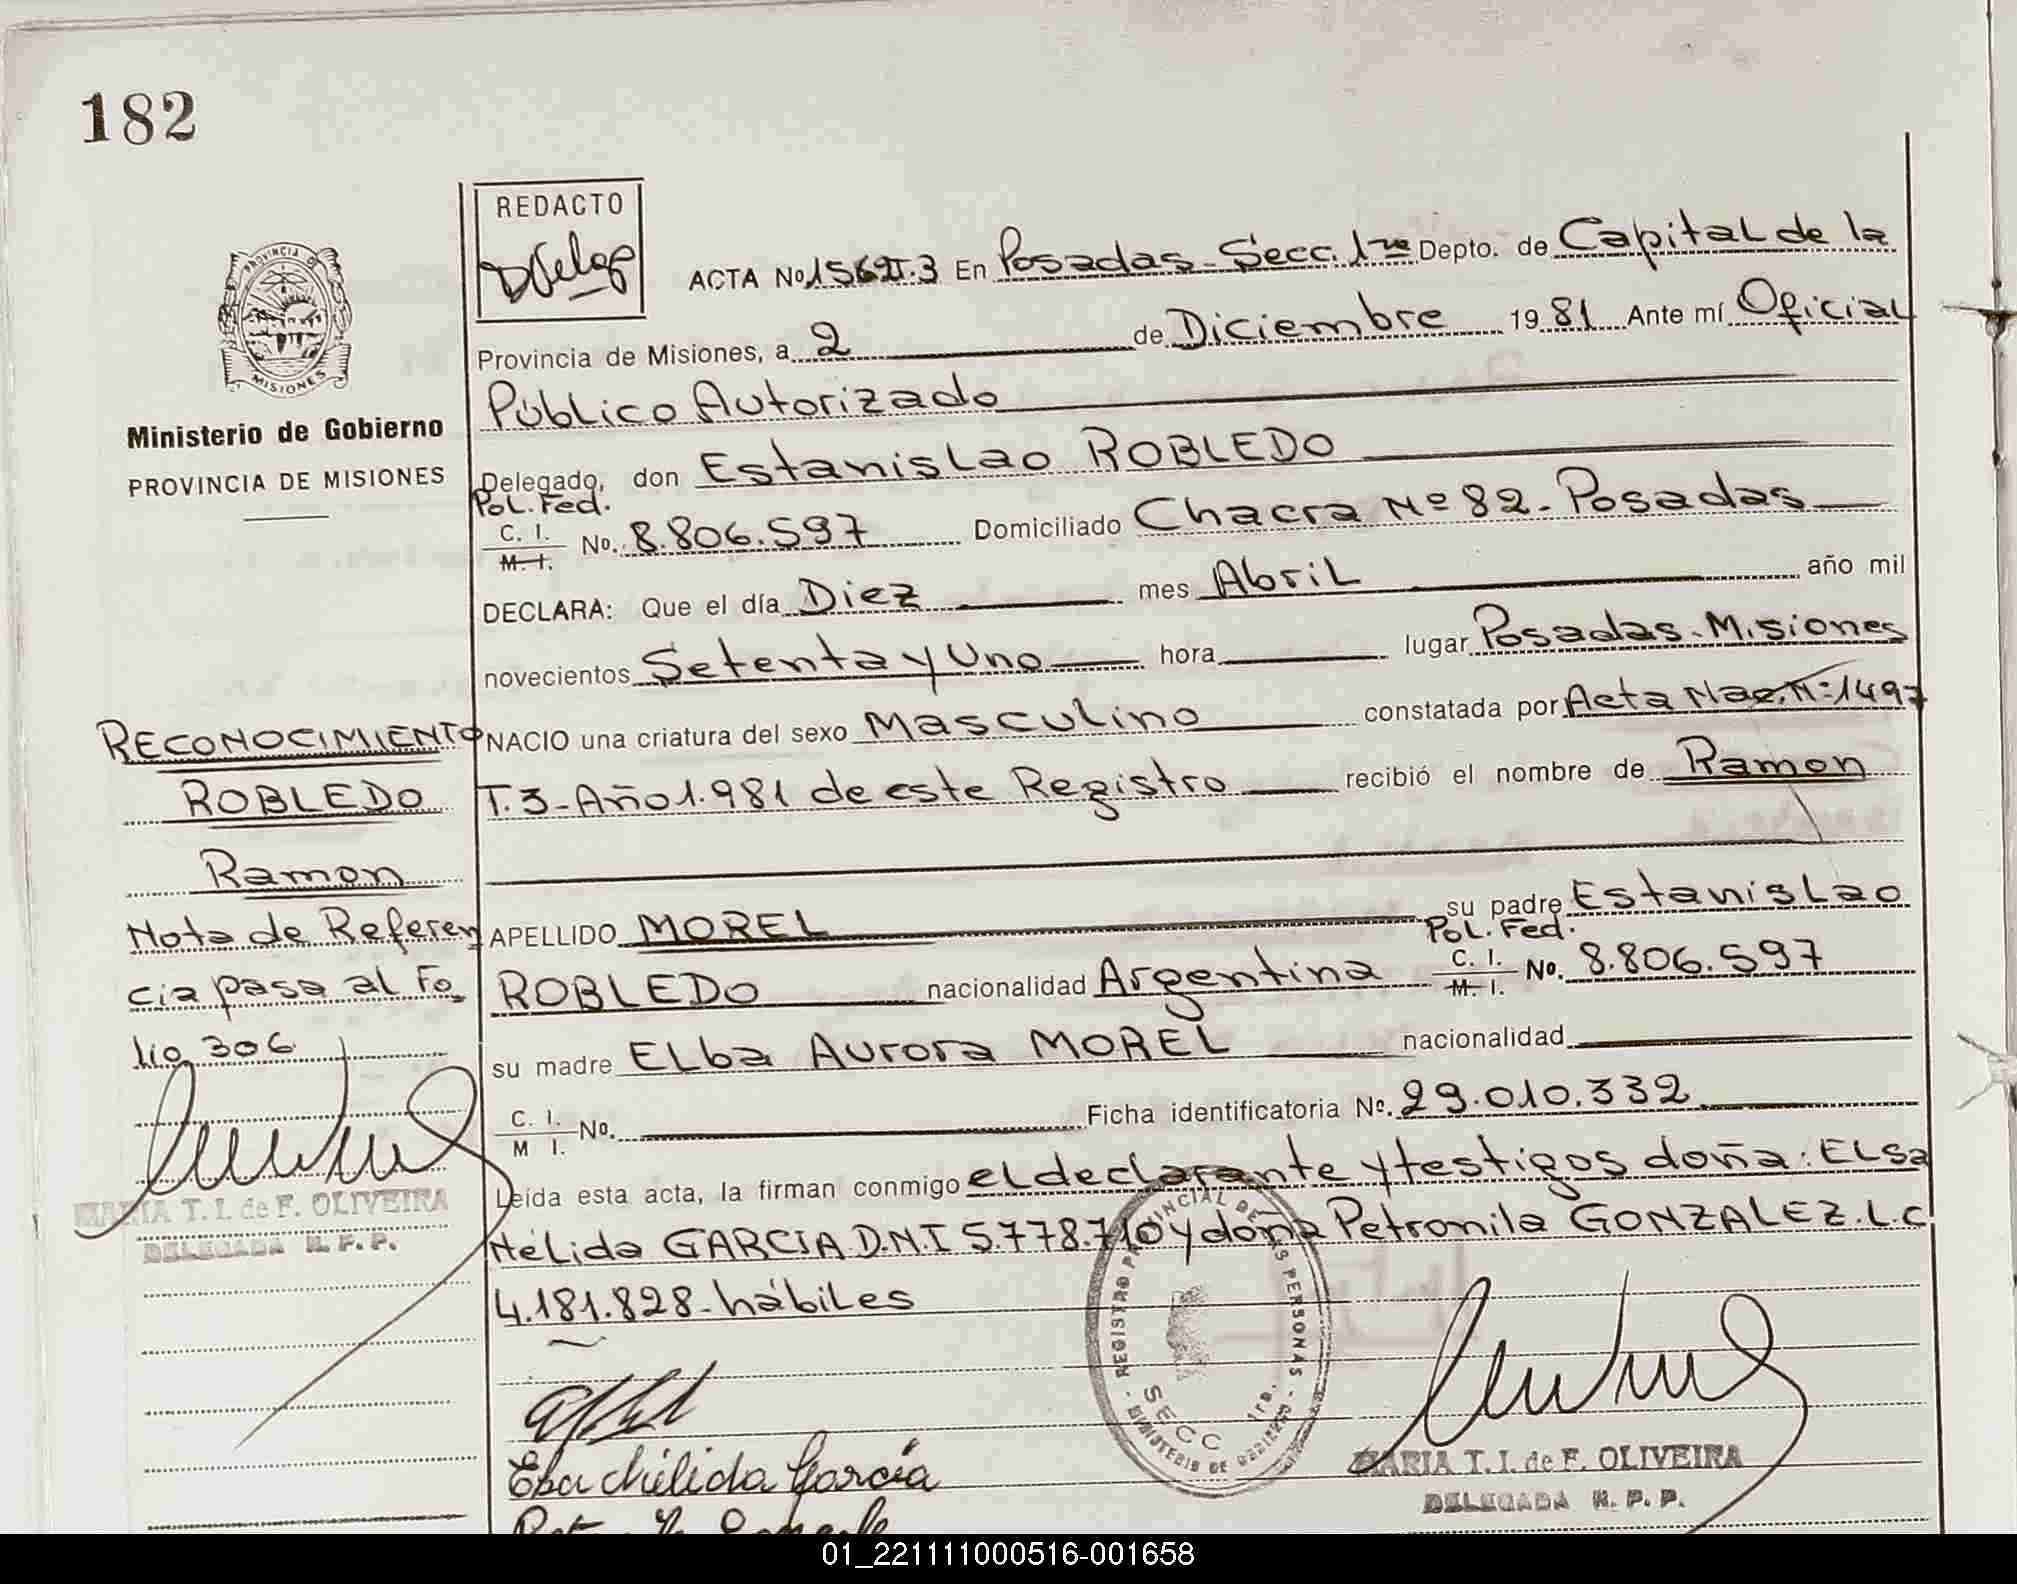 182
REDACTO
PROVINCIA DE
MISIONES
Ministerio de Gobierno
PROVINCIA DE MISIONES
ACTA No 1562 T.3 En Posadas - Secc. 1ra Depto. de Capital de la
Provincia de Misiones, a 2 de Diciembre 1981 Ante mí Oficial
Público Autorizado
Delegado, don Estanislao ROBLEDO
Pol. Fed.
C. I. No. 8.806.597 Domiciliado Chacra Nº 82 - Posadas
M. I.
DECLARA: Que el día Diez mes Abril año mil
novecientos Setenta y Uno hora lugar Posadas - Misiones
NACIO una criatura del sexo Masculino constatada por Acta Nac. Nº 1497
T. 3 - Año 1.981 de este Registro recibió el nombre de Ramon
APELLIDO MOREL su padre Estanislao
Pol. Fed.
ROBLEDO nacionalidad Argentina C. I. No. 8.806.597
M. I.
su madre Elba Aurora MOREL nacionalidad
C. I. No. Ficha identificatoria No. 29.010.332
M I.
Leída esta acta, la firman conmigo el declarante y testigos doña: Elsa
Nélida GARCIA D.N.I 5.778.710 y doña Petronila GONZALEZ. L.C.
4.181.828 - hábiles
RECONOCIMIENTO
ROBLEDO
Ramon
Nota de Referen
cia pasa al Fo
lio 306
MARIA T. I. de F. OLIVEIRA
DELEGADA R. P. P.
REGISTRO PROVINCIAL DE LAS PERSONAS
SECC 1ra.
MINISTERIO DE GOBIERNO
Nélida García
MARIA T. I. de F. OLIVEIRA
DELEGADA R. P. P.
01_221111000516-001658